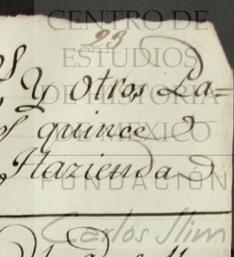 CENTRO DE
23
ESTUDIOS
Y otros, La=
DE HISTORIA
quince
DE MEXICO
Hazienda
FUNDACIÓN
Carlos Slim